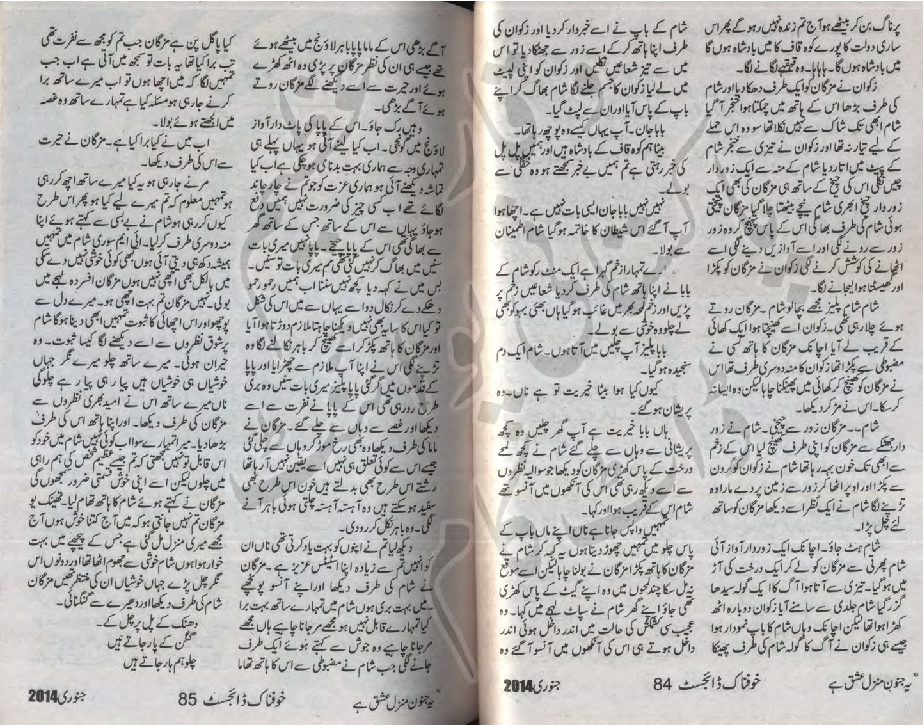 پر ناگ بن کر بیٹھے ہو آج تم زندہ نہیں رہو گے پھر اس
ساری دولت کا پورے کوہ قاف کا میں بادشاہ ہوں گا
میں بادشاہ ہوں گا۔ ہاہاہا۔ وہ قہقہے لگانے لگا۔
زکوان نے مژگان کو ایک طرف دھکا دیا اور شام
کی طرف بڑھا اس کے ہاتھ میں چمکتا ہوا خنجر آ گیا
شام ابھی تک شاک سے نہیں نکلا تھا سو وہ اس حملے
کے لیے تیار نہ تھا اور زکوان نے تیزی سے خنجر شام
کے پیٹ میں اتار دیا شام کے منہ سے ایک زوردار
چیخ نکلی اس کی چیخ کے ساتھ ہی مژگان کی بھی ایک
زوردار چیخ ابھری شام نیچے بیٹھتا چلا گیا مژگان چیختی
ہوئی شام کی طرف بھاگی اس کے پاس پہنچ کر وہ زور
زور سے رونے لگی اور اسے آوازیں دینے لگی اسے
اٹھانے کی کوشش کرنے لگی زکوان نے مژگان کو پکڑا
اور گھسیٹتا ہوا لیجانے لگا۔
شام شام پلیز مجھے بچا لو شام۔ مژگان روتے
ہوئے چلا رہی تھی۔ زکوان اسے کھینچتا ہوا ایک کھائی
کے قریب لے آیا اچانک مژگان کا ہاتھ کسی نے
مضبوطی سے پکڑا تھا زکوان کا منہ دوسری طرف تھا اس
نے مژگان کو کھینچ کر کھائی میں پھینکنا چاہا لیکن وہ ایسا نہ
کر سکا۔ اس نے مڑ کر دیکھا۔
شام۔۔ مژگان زور سے چیخی۔ شام نے زور
دار جھٹکے سے مژگان کو اپنی طرف کھینچ لیا اس کے زخم
سے ابھی تک خون بہہ رہا تھا شام نے زکوان کو گردن
سے پکڑا اور اوپر اٹھا کر زور سے زمین پر دے مارا وہ
تڑپنے لگا شام نے ایک نظر اسے دیکھا مژگان کو ساتھ
لئے چل پڑا۔
شام ہٹ جاؤ۔ اچانک ایک زوردار آواز آئی
شام پھرتی سے مژگان کو لے کر ایک درخت کی آڑ
میں ہو گیا۔ تیزی سے آتا ہوا آگ کا ایک گولہ سیدھا
گزر گیا شام جلدی سے سامنے آیا زکوان دوبارہ اٹھ
کھڑا ہوا تھا لیکن اچانک وہاں شام کا باپ نمودار ہوا
جیسے ہی زکوان نے آگ کا گولہ شام کی طرف پھینکا
شام کے باپ نے اسے خبردار کر دیا اور زکوان کی
طرف اپنا ہاتھ کر کے اسے زور سے جھٹکا دیا تو اس
میں سے تیز شعاعیں نکلیں اور زکوان کو اپنی لپیٹ
میں لے لیا زکوان کا جسم جلنے لگا شام بھاگ کر اپنے
باپ کے پاس آیا اور ان سے لپٹ گیا۔
بابا جان۔ آپ یہاں کیسے وہ پوچھ رہا تھا۔
بیٹا ہم کوہ قاف کے بادشاہ ہیں اور ہمیں پل پل
کی خبر رہتی ہے تم ہمیں بے خبر سمجھتے ہو وہ خفگی سے
بولے۔
نہیں نہیں بابا جان ایسی بات نہیں ہے۔ اچھا ہوا
آپ آ گئے اس شیطان کا خاتمہ ہو گیا شام اطمینان
سے بولا۔
ارے تمہارا زخم گہرا ہے ایک منٹ رکو شام کے
بابا نے اپنا ہاتھ شام کی طرف کر دیا شعاعیں زخم پر
پڑیں اور زخم لمحہ بھر میں غائب ہو گیا ہاں بھئی بہو کو بھی
لے چلو وہ خوشی سے بولے۔
بابا پلیز آپ چلیں میں آتا ہوں۔ شام ایک دم
سنجیدہ ہو گیا۔
کیوں کیا ہوا بیٹا خیریت تو ہے ناں۔ وہ
پریشان ہو گئے۔
ہاں بابا خیریت ہے آپ گھر چلیں وہ کچھ
پریشانی سے وہاں سے چلے گئے شام نے کچھ لمحے
درخت کے پاس کھڑی مژگان کو دیکھا جو سوالیہ نظروں
سے اسے دیکھ رہی تھی اس کی آنکھوں میں آنسو تھے
شام اس کے قریب ہوا اور کہا۔
تمہیں واپس جانا ہے ناں اپنے ماں باپ کے
پاس چلو میں تمہیں چھوڑ دیتا ہوں یہ کہہ کر شام نے
مژگان کا ہاتھ پکڑا مژگان نے بولنا چاہا لیکن اسے موقع
نہ مل سکا چند لمحوں میں وہ اپنے گیٹ کے پاس کھڑی
تھی جاؤ اپنے گھر شام نے سپاٹ لہجے میں کہا۔ وہ
عجیب سی کشمکش کی حالت میں اندر داخل ہوئی اندر
داخل ہوتے ہی اس کی آنکھوں میں آنسو آ گئے وہ
یہ جنون منزل عشق ہے
خوفناک ڈائجسٹ 84
جنوری 2014
آگے بڑھی اس کے ماما پاپا باہر لاؤنج میں بیٹھے ہوئے
تھے جیسے ہی ان کی نظر مژگان پر پڑی وہ اٹھ کھڑے
ہوئے اور حیرت سے اسے دیکھنے لگے مژگان روتے
ہوئے آگے بڑھی۔
وہیں رک جاؤ۔ اس کے پاپا کی پاٹ دار آواز
لاؤنج میں گونجی۔ اب کیا لینے آئی ہو یہاں پہلے ہی
تمہاری وجہ سے ہماری بہت بدنامی ہو چکی ہے اب کیا
تماشہ دیکھنے آئی ہو ہماری عزت کو جو تم نے چار چاند
لگائے تھے اب کسی چیز کی ضرورت نہیں ہمیں دفع
ہو جاؤ یہاں سے اس کے ساتھ جس کے ساتھ گھر
سے بھاگی تھی اس کے پاپا چیخے۔ پاپا نہیں میری بات
سنیں میں بھاگ کر نہیں گئی تھی تم میری بات تو سنیں۔
بس میں نے کہہ دیا کچھ نہیں سننا اب ہمیں رحمو رحمو
دھکے دے کر نکال دو اسے یہاں سے میں اس کی شکل
تو کیا اس کا سایہ بھی نہیں دیکھنا چاہتا ملازم دوڑتا ہوا آیا
اور مژگان کا ہاتھ پکڑ کر اسے کھینچ کر باہر نکالنے لگا وہ
تڑپنے لگی اس نے اپنا آپ ملازم سے چھڑایا اور پاپا
کے قدموں میں گر گئی پاپا پلیز میری بات سنیں وہ بری
طرح رو رہی تھی اس کے پاپا نے نفرت سے اسے
دیکھا اور غصے سے وہاں سے چلے گئے۔ مژگان نے
ماما کی طرف دیکھا وہ بھی رخ موڑ کر وہاں سے چلی گئی
جیسے اس سے کوئی تعلق ہی نہیں اسے یقین نہیں آ رہا تھا
رشتے اس طرح بھی بدلتے ہیں خون اس طرح بھی
سفید ہو سکتے ہیں وہ آہستہ آہستہ چلتی ہوئی باہر آنے
لگی۔ وہ باہر نکل کر رو دی۔
دیکھ لیا تم نے اپنوں کو بہت یاد کرتی تھی ناں ان
کو انہیں تم سے زیادہ اپنا اسٹیٹس عزیز ہے۔ مژگان
نے شام کی طرف دیکھا اور اپنے آنسو پونچھے
۔ میں بہت بری ہوں شام میں تمہارے ساتھ بہت برا
کیا تمہارے قابل نہیں ہوں مجھے مر جانا چاہیے ہاں مجھے
مر جانا چاہیے وہ جوش سے کہتے ہوئے ایک طرف
جانے لگی جب شام نے مضبوطی سے اس کا ہاتھ تھاما
کیا پاگل پن ہے مژگان جب تم کو مجھ سے نفرت تھی
تب برا کیا تھا یہ بات تو سمجھ میں آتی ہے اب جب
تمہیں لگا کہ میں اچھا ہوں تو اب میرے ساتھ برا
کرنے جا رہی ہو مسئلہ کیا ہے تمہارے ساتھ وہ غصہ
میں الجھتے ہوئے بولا۔
اب میں نے کیا برا کیا ہے۔ مژگان نے حیرت
سے اس کی طرف دیکھا۔
مرنے جا رہی ہو یہ کیا میرے ساتھ اچھا کر رہی
ہو تمہیں معلوم کہ تم میرے لیے کیا ہو پھر اس طرح
کیوں کر رہی ہو شام نے بے بسی سے کہتے ہوئے اپنا
منہ دوسری طرف کر لیا۔ ائی ایم سوری شام میں تمہیں
ہمیشہ دکھ ہی دیتی آئی ہوں کبھی کوئی خوشی نہیں دے سکی
میں بالکل بھی اچھی نہیں ہوں مژگان افسردہ لہجے میں
بولی۔ نہیں مژگان تم بہت اچھی ہو۔ میرے دل سے
پوچھو اور اس اچھائی کا ثبوت تمہیں ابھی دینا ہوگا شام
پرشوق نظروں سے اسے دیکھنے لگا کیسا ثبوت۔ وہ
حیران ہوئی۔ میرے ساتھ چلو میرے نگر جہاں
خوشیاں ہی خوشیاں ہیں پیار ہی پیار ہے چلو گی
ناں میرے ساتھ اس نے امید بھری نظروں سے
مژگان کی طرف دیکھا۔ اور اپنا ہاتھ اس کی طرف
بڑھا دیا۔ میرا تمہارے سوا اب کوئی نہیں شام میں خود کو
اس قابل تو نہیں سمجھتی کہ تم جیسے عظیم شخص کی ہم راہی
میں چلوں لیکن اسے اپنی خوش قسمتی ضرور سمجھوں گی
مژگان نے کہتے ہوئے شام کا ہاتھ تھام لیا۔ تھینک یو
مژگان تم نہیں جانتی ہو کہ میں آج کتنا خوش ہوں آج
مجھے میری منزل مل گئی ہے جس کے پیچھے میں بہت
خوار ہوا ہوں شام خوشی سے جھوم اٹھا تھا اور دونوں اس
نگر چل پڑے جہاں خوشیاں ان کی منتظر تھیں مژگان
شام کی طرف دیکھا اور دھیرے سے گنگنائی۔
دھنک کے پل پر چل کے۔
گگن کے پار جاتے ہیں
چلو ہم ہار جاتے ہیں
یہ جنون منزل عشق ہے
خوفناک ڈائجسٹ 85
جنوری 2014